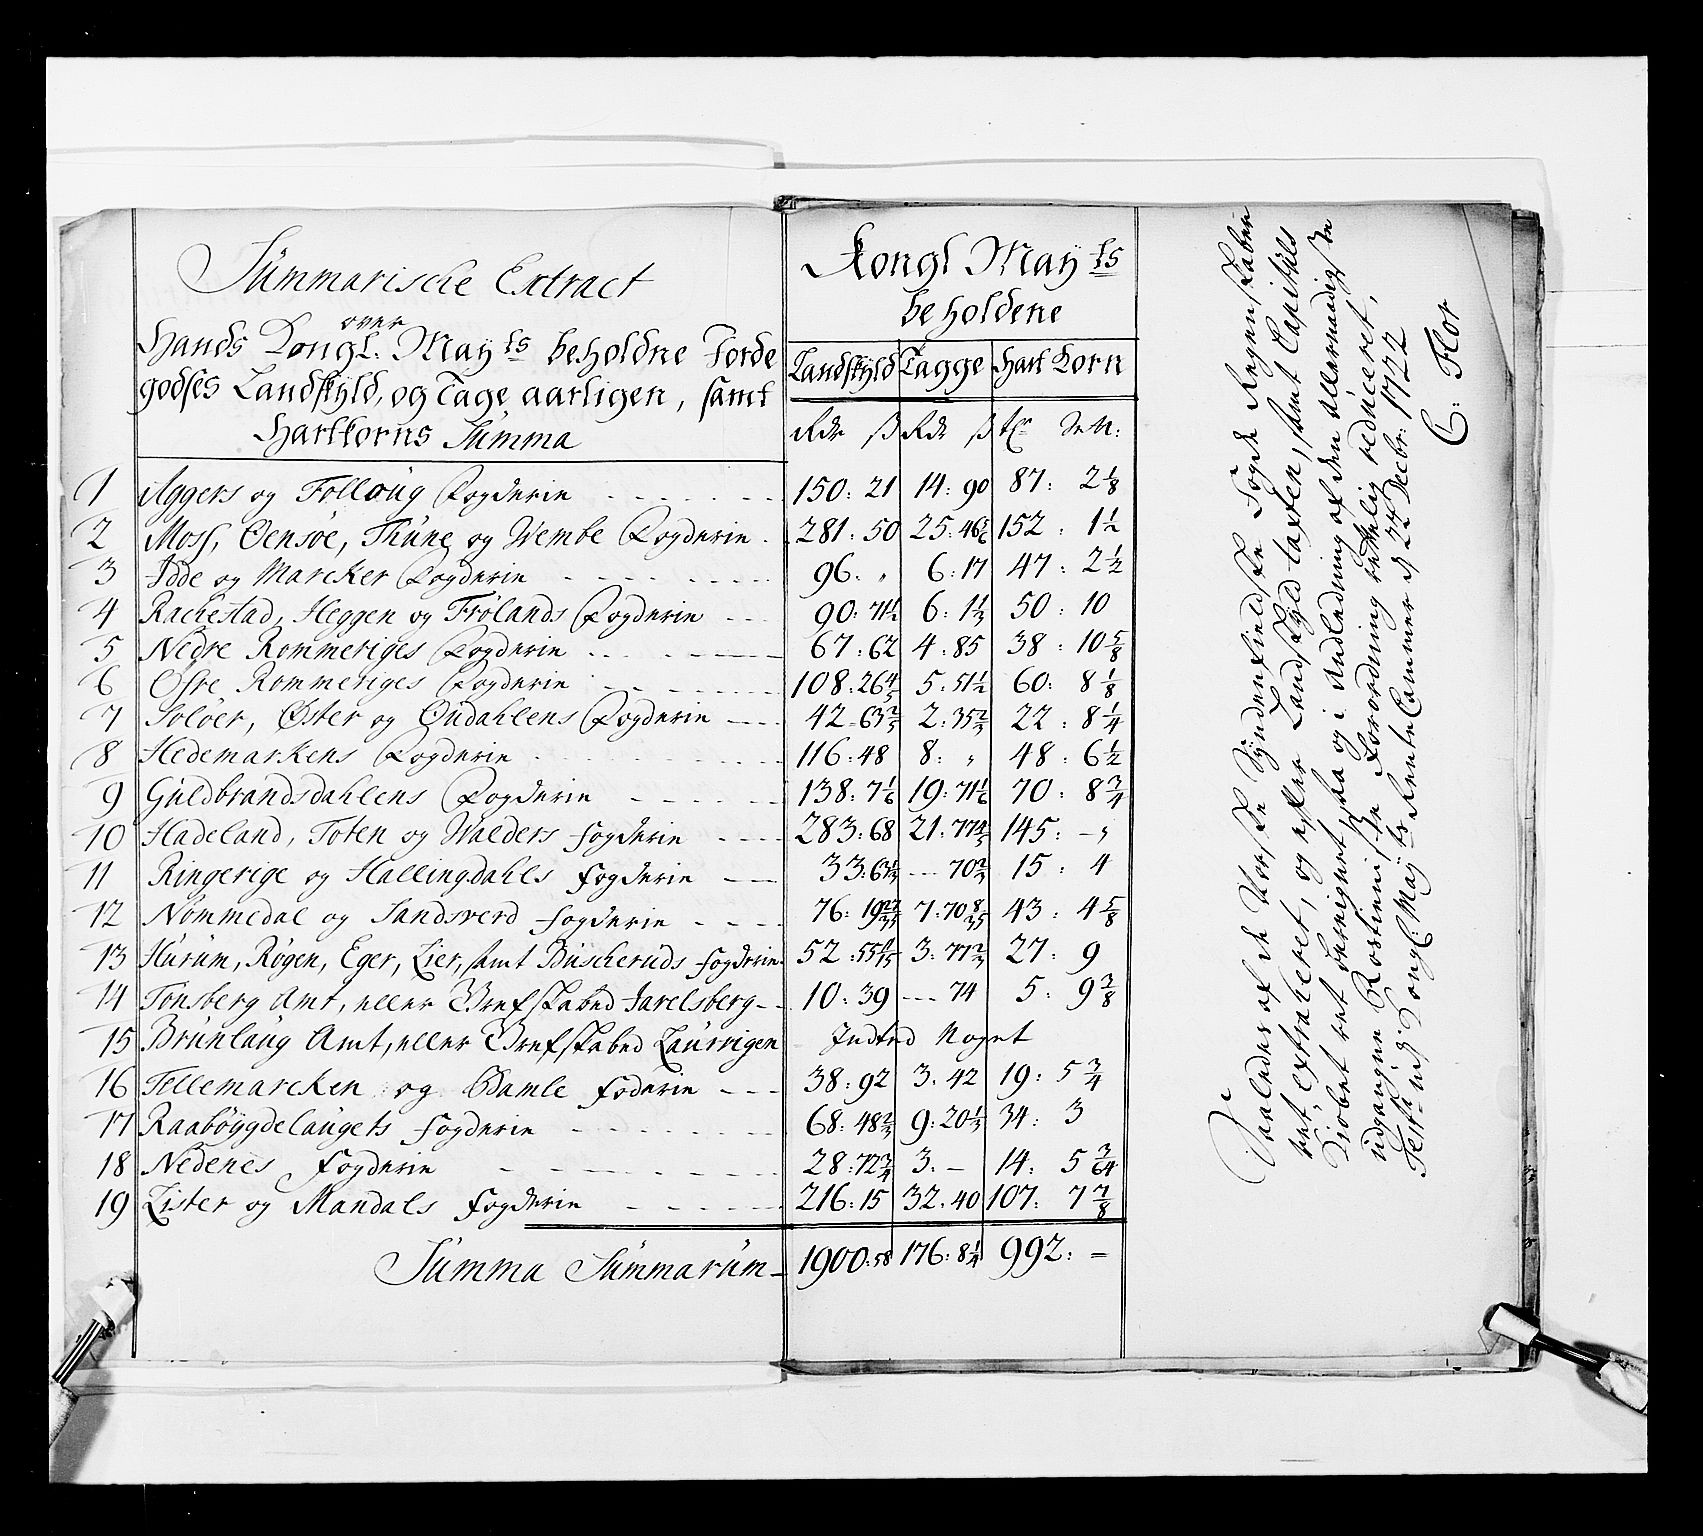 Summarische Extract
over
Hands Kongl. May ts beholdne Jorde
godses Landskyld, og Tage aarligen, samt
Hartkorns Summa
Kongl May ts
beholdene
Landskyld Tagge Hart Korn
Rdr ß Rdr ß
1 Aggers og Follong Fogderie 150: 21 14: 90 87: 2 1/8
2 Moss, Oensøe, Thüne og Wembe Fogderie 281: 50 25: 152: 1 1/2
3 Idde og Marcker Fogderie 96: „ 6: 17 47: 2 1/2
4 Rachestad, Heggen og Frølands Fogderie 90: 71 1/2 6: 1 1/3 50: 10
5 Nedre Rommeriges Fogderie 67: 62 4: 85 38: 10 5/8
6 Øfre Rommeriges Fogderie 108: 26 4/5 5: 51 1/2 60: 8 1/8
7 Soløer, Øster og Oudahlens Fogderie 42: 63 2: 35 22: 8 1/4
8 Hedemarkens Fogderie 116: 48 8: „ 48: 6 1/2
9 Guldbrandsdahlens Fogderie 138: 7 1/6 19: 71 1/6 70: 8 3/4
10 Hadeland, Toten og Walders fogderie 283: 68 21: 77 4/5 145: - „
11 Ringerige og Hallingdahls fogderie 33: 63 --- 70 2/3 15: 4
12 Nommedal og Sandsverd fogderie 76: 19 27/35 7: 70 8/35 43: 4 5/8
13 Hürüm, Røgen, Eger, Lier, samt Büscheruds fogderie 52: 55 3: 77 2/3 27: 9
14 Tønsberg Amt, eller Grefskabed Jarelsberg 10: 39 --- 74 5: 9 3/8
15 Brünlaüg Amt, eller Grefskabed Laürvigen Intted Noget
16 Tellemarcken og Bamle foderie 38: 92 3: 42 19: 5 3/4
17 Raabøygdelaugets fogderie 68: 48 2/3 9: 20 1/3 34: 3
18 Nedenes fogderie 28: 72 3/4 3: - 14: 5 3/64
19 Lister og Mandals fogderie 216: 15 32: 40 107: 7 7/8
Summa Summarüm 1900: 58 176: 8 1/4 992: -
Saaledes af de Norske Syndenfieldske Fogde Regenskaber
vet extraheret, og efter Landskyld taxten, samt Capitüls
Kiøbet vet beregnet, saa og i Anledning af den allernaadigste
udgangne Rosteniste Forordning rettelig reduceret,
Test: ved Kongl: May ts Rente Cammer d 22 Decbr: 1722
C: Flor